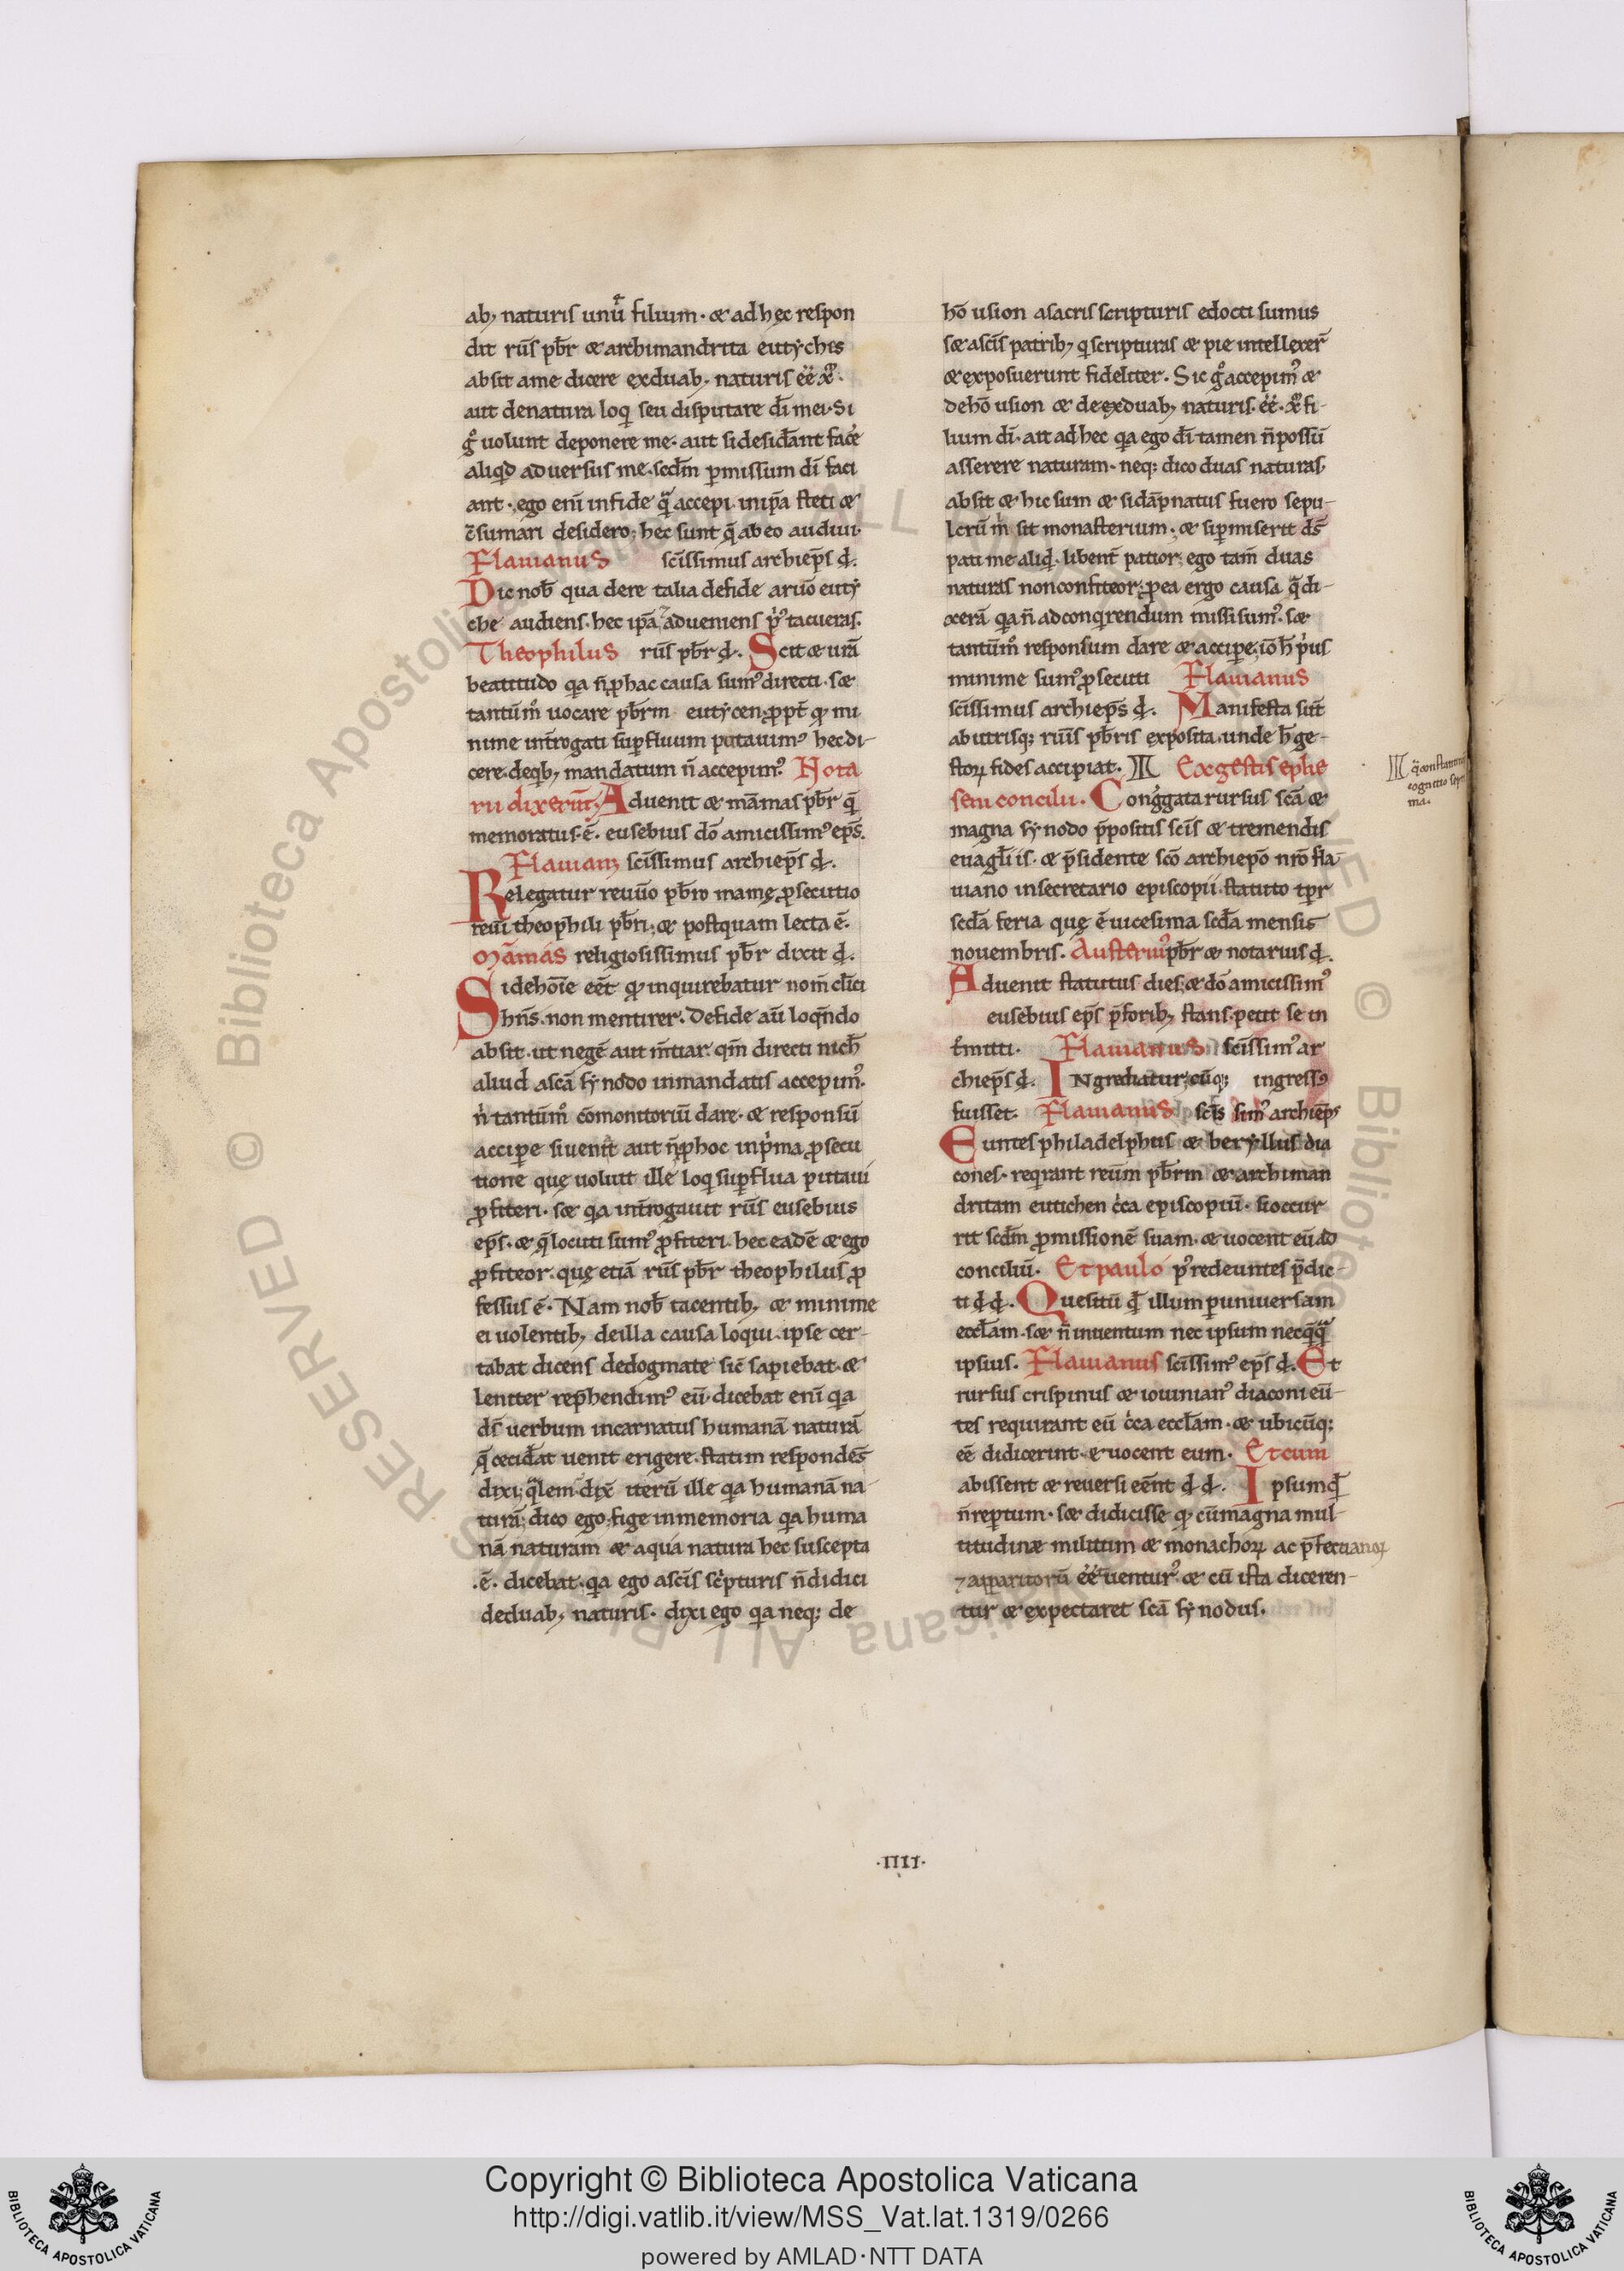 ab; naturis unū filium· & ad hęc respon
dit rūs pbr̄ & archimandrita eutẏches
absit a me dicere ex duab; naturis eē̄ xp̄ō·
aut de natura loq̇ seu disputare dī mei· Si
gͦ uolunt deponere me· aut si desid̄ant facē
aliq̇d aduersus me· scdm̄ ꝑmissum dī faci
ant· ego eni᷒ in fide q̄ᷓ accepi· in ip̄a steti &
ꝯsumari desidero; hec sunt q̄ ab eo audiui·
Flauianus scīssimus archiep̄s d̄·
Dic nob̄ qua de re talia de fide a ruō eutẏ
che audiens· hec ip̄a adueniens pͥꝰ tacueras·
Theophilus rūs pbr̄ d̄· Scit & urā
beatitudo qa n̄ ꝓ hac causa sumꝰ directi· s&
tantūmͦ uocare pbr̄m eutẏcen· ꝓpt̄ qͩ mi
nime int̄rogati suꝑfluum putauimꝰ hec di-
cere· de qb; mandatum n̄ accepimꝰ· Nota
rii dixerūt· Aduenit & māmas pbr̄ q̄
memoratus ·ē· eusebius dō amicissimꝰ ep̄s·
Flauianꝰ scīssimus archiep̄s d̄·
Relegatur reuūo pbr̄o mamę ꝓsecutio
reui᷒ theophili pbr̄i; & postquam lecta ē·
Māmas religiosissimus pbr̄ dixit d̄·
Si de hōīe eēt qͩ inquirebatur nom̄ clīci
hn̄s· non mentirer· De fide aū loqn̄do
absit· ut negē aut m̄tiar· qm̄ directi nich̄
aliud a scā sẏnodo in mandatis accepimꝰ·
nͥ tantūmͦ cōmonitoriū dare· & responsū
acciꝑe si uenīt aut n̄· ꝓhoc in pͥma ꝓsecu
tione quę uoluit ille loq̇ suꝑflua putaui
ꝓfiteri· s& qa int̄rogauit rūs eusebius
ep̄s· & q̄ locuti sumꝰ ꝓfiteri· hec eadē & ego
ꝓfiteor· quę etiā rūs pbr̄ theophilus ꝓ
fessus ē· Nam nob̄ tacentib; & minime
ei uolentib; de illa causa loqui· ipse cer-
tabat dicens de dogmate sic̄ sapiebat· &
leniter rep̄hendimꝰ eū· dicebat eni᷒ qa
ds̄ uerbum incarnatus humanā naturā
q̄ cecid̄at uenit erigere· statim respondēs
dixi; q̄ᷓlem· dix̄ iterū ille qa humanā na
turā; dico ego· fige in memoria qa huma
nā naturam & a qua natura hec suscepta
·ē· dicebat· qa ego a scīs scͥpturis n̄ didici
de duab; naturis· dixi ego qa neq; de
hō usion a sacris scripturis edocti sumus
s& a scīs patrib; q̇ scripturas & pie intellexer̄
& exposuerunt fideliter· Sic gͦ accepimꝰ &
de hō usion & de ex duab; naturis· eē̄· xp̄ō fi-
lium dī· ait ad hec qa ego dī tamen n̄ possū
asserere naturam· neq; dico duas naturas·
absit & hic sum & si dāpnatus fuero sepu-
lcrū mͥ sit monasterium· & si ꝑmiserit ds̄
pati me aliq̇d· libent̄ patior; ego tam̄ duas
naturas non confiteor; ꝓ ea ergo causa q̄ᷓ di-
xerā qa n̄ ad conq̇rendum missi sumꝰ· s&
tantūmͦ responsum dare & acciꝑe; iō h̄ pͥus
minime sumꝰ ꝓsecuti Flauianus
scīssimus archiep̄s d̄· Manifesta sūt
ab utrisq; ruīs pbr̄is exposita· unde h̄ ge-
stoꝝ fides accipiat· III Ex gestis ephe
seni concilii· Congͤgata rursus scā &
magna sẏnodo p̄positis scīs & tremendis
euaglīis· & p̄sidente scō archiepō nrō fla
uiano in secretario episcopii· statuto tp̄r
scda feria quę ē uicesima scda mensis
nouembris· Austeriuꝰ pbr̄ & notarius d̄·
Aduenit statutus dies; & dō amicissimꝰ
eusebius ep̄s p̄ forib; stans· petit se in
t̄mitti· Flauianus scīssimꝰ ar
chiep̄s d̄· Ingrediatur; cūq; ingressꝰ
fuisset· Flauianus scīs simꝰ archiep̄s
Euntes philadelphus & berẏllus dia
cones· req̇rant reūm pbr̄m & archiman
dritam eutichen cͥca episcopiū· si occur
rit scdm̄ ꝓmissionē suam· & uocent eū ad
conciliū· Et paulo pꝰ redeuntes p̄dic-
ti d̄ d̄· Quesitū q̇d illum ꝑ uniuersam
eccl̄am· s& n̄ inuentum nec ipsum nec q̄q̄ᷓ
ipsius· Flauianus scīssimꝰ ep̄s d̄· Et
rursus crispinus & iouinianꝰ diaconi eū-
tes requirant eū cͥca eccl̄am· & ubicūq;
eē didicerint· & uocent eum· Et cum
abissent & reuersi eēnt d̄ d̄· Ipsum q̇d
n̄ reꝑtum· s& didicisse qͩ cū magna mul-
titudinæ militum & monachoꝝ ac p̄fectianoꝝ
⁊ apparitorū eē̄ uenturꝰ· & cū ista diceren-
tur & expectaret scā sẏnodus·
III
cognitio
·IIII·
Copyright © Biblioteca Apostolica Vaticana
http://digi.vatlib.it/view/MSS_Vat.lat.1319/0266
powered by AMLAD·NTT DATA
BIBLIOTECA APOSTOLICA VATICANA
BIBLIOTECA APOSTOLICA VATICANA